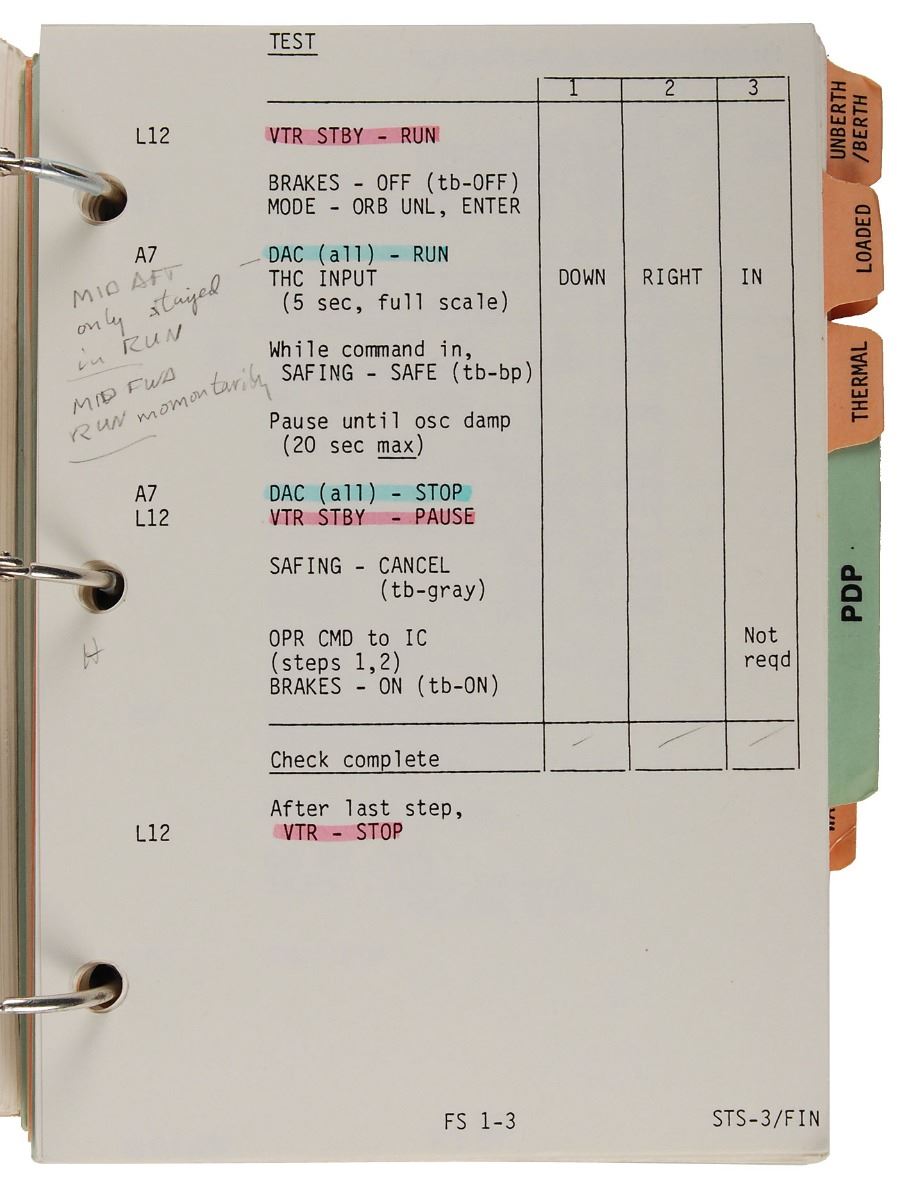 TEST
1 2 3
L12 VTR STBY - RUN
BRAKES - OFF (tb-OFF)
MODE - ORB UNL, ENTER
A7 DAC (all) - RUN
THC INPUT DOWN RIGHT IN
(5 sec, full scale)
MID AFT
only stayed
in RUN
MID FWD
RUN momontarily
While command in,
SAFING - SAFE (tb-bp)
Pause until osc damp
(20 sec max)
A7 DAC (all) - STOP
L12 VTR STBY - PAUSE
SAFING - CANCEL
(tb-gray)
OPR CMD to IC Not
(steps 1,2) reqd
BRAKES - ON (tb-ON)
Check complete
After last step,
L12 VTR - STOP
FS 1-3 STS-3/FIN
UNBERTH
/BERTH
LOADED
THERMAL
PDP